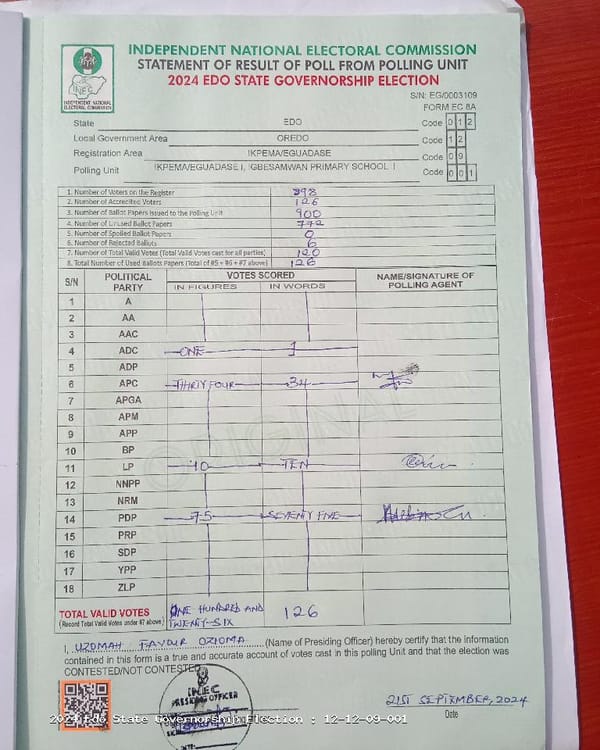 INDEPENDENT NATIONAL ELECTORAL COMMISSION
STATEMENT OF RESULT OF POLL FROM POLLING UNIT
2024 EDO STATE GOVERNORSHIP ELECTION
INEC
INDEPENDENT NATIONAL
ELECTORAL COMMISSION
S/N: EG/0003109
FORM EC 8A
State EDO Code 0 1 2
Local Government Area OREDO Code 1 2
Registration Area IKPEMA/EGUADASE Code 0 9
Polling Unit IKPEMA/EGUADASE I, IGBESAMWAN PRIMARY SCHOOL I Code 0 0 1
1. Number of Voters on the Register 898
2. Number of Accredited Voters 126
3. Number of Ballot Papers Issued to the Polling Unit 900
4. Number of Unused Ballot Papers 772
5. Number of Spoiled Ballot Papers 0
6. Number of Rejected Ballots 6
7. Number of Total Valid Votes (Total Valid Votes cast for all parties) 120
8. Total Number of Used Ballots Papers (Total of #5 + #6 + #7 above) 126
S/N POLITICAL PARTY VOTES SCORED NAME/SIGNATURE OF POLLING AGENT
IN FIGURES IN WORDS
1 A
2 AA
3 AAC
4 ADC ONE 1
5 ADP
6 APC THIRTY FOUR 34
7 APGA
8 APM
9 APP
10 BP
11 LP 10 TEN
12 NNPP
13 NRM
14 PDP 75 SEVENTY FIVE
15 PRP
16 SDP
17 YPP
18 ZLP
ORIGINAL
TOTAL VALID VOTES ONE HUNDRED AND TWENTY-SIX 126
(Record Total Valid Votes under #7 above)
I, UZOMAH FAVOUR OZIOMA (Name of Presiding Officer) hereby certify that the information
contained in this form is a true and accurate account of votes cast in this polling Unit and that the election was
CONTESTED/NOT CONTESTED
INEC
PRESIDING OFFICER
21ST SEPTEMBER, 2024
Date
2024 Edo State Governorship Election : 12-12-09-001